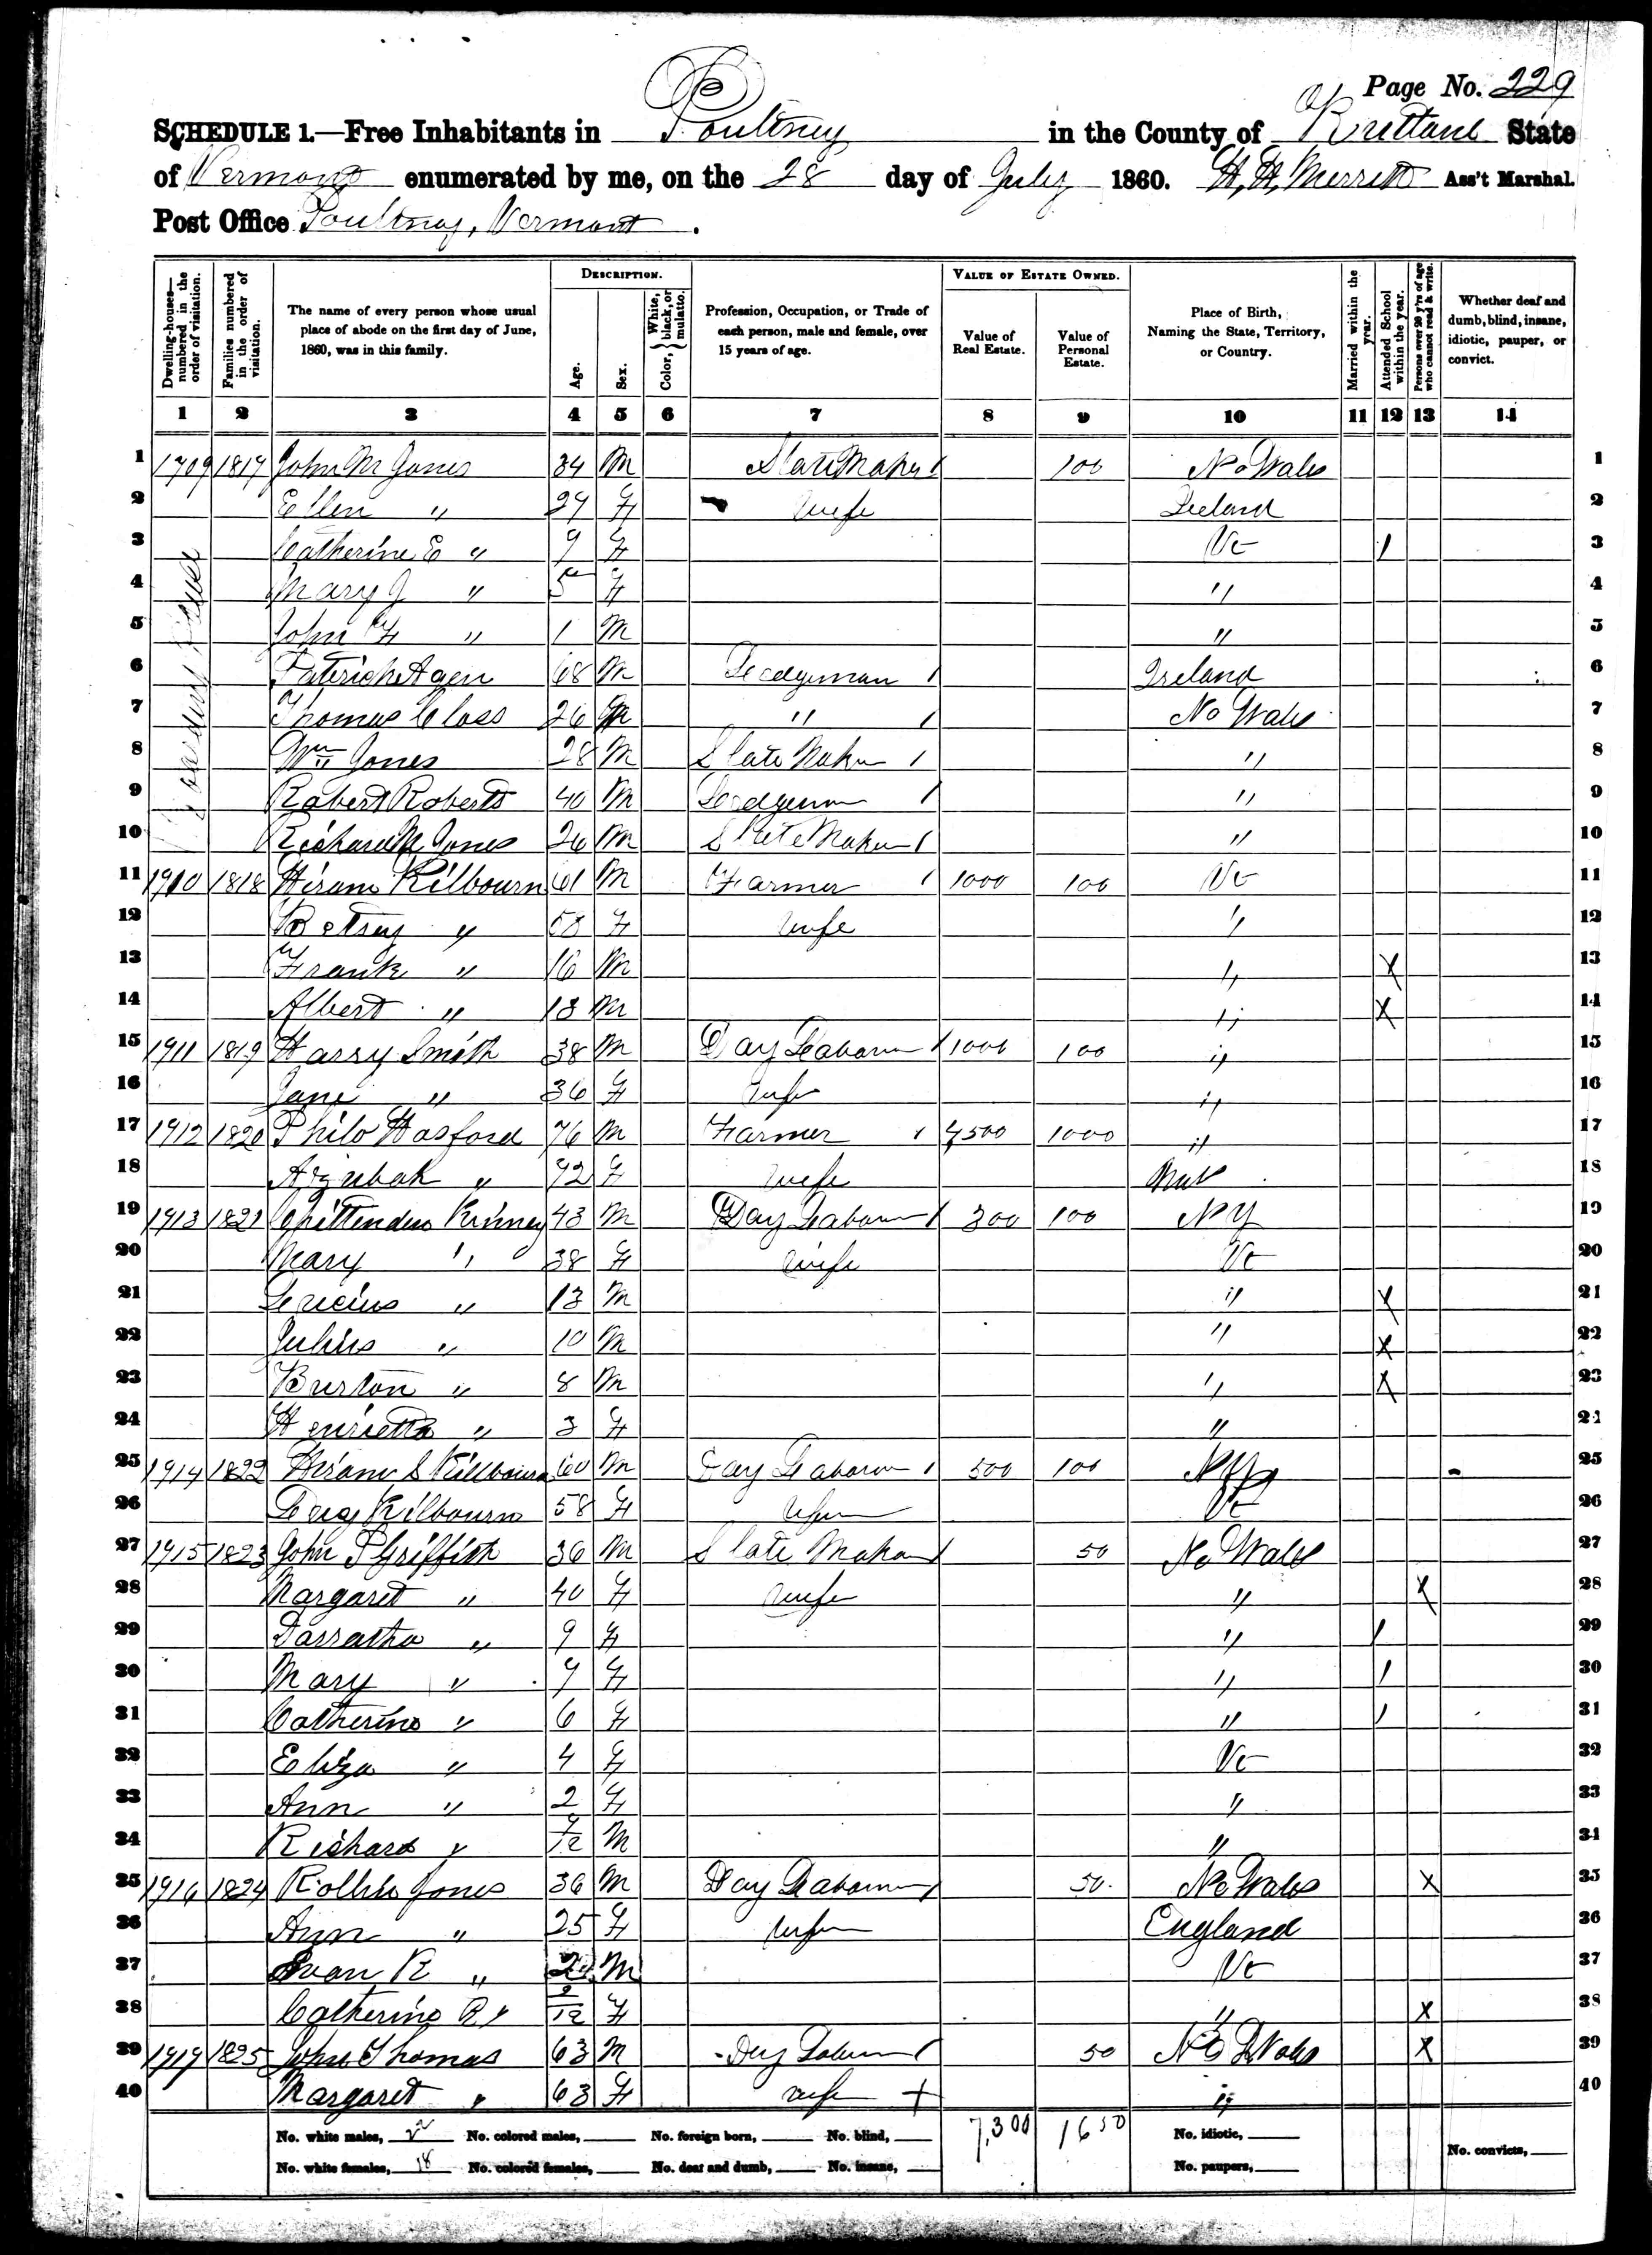 Page No. 229
SCHEDULE 1.—Free Inhabitants in Poultney in the County of Rutland State
of Vermont enumerated by me, on the 28 day of July 1860. H. H. Merritt Ass't Marshal.
Post Office Poultney, Vermont.
Dwelling-houses—numbered in the order of visitation.
Families numbered in the order of visitation.
The name of every person whose usual place of abode on the first day of June, 1860, was in this family.
DESCRIPTION.
Age.
Sex.
Color, White, black, or mulatto.
Profession, Occupation, or Trade of each person, male and female, over 15 years of age.
VALUE OF ESTATE OWNED.
Value of Real Estate.
Value of Personal Estate.
Place of Birth, Naming the State, Territory, or Country.
Married within the year.
Attended School within the year.
Persons over 20 y'rs of age who cannot read & write.
Whether deaf and dumb, blind, insane, idiotic, pauper, or convict.
1 2 3 4 5 6 7 8 9 10 11 12 13 14
1 1909 1817 John M Jones 34 M Slate Maker / 100 No Wales 1
2 Ellen " 27 F Wife Ireland 2
3 Catherine E " 7 F Vt / 3
4 Mary J " 5 F " 4
5 John H " 1 M " 5
6 Patrick Agen 68 M Ledgeman / Ireland 6
7 Thomas Closs 26 M " / No Wales 7
8 Wm Jones 28 M Slate Maker / " 8
9 Robert Roberts 40 M Ledgeman / " 9
10 Richard M Jones 26 M Slate Maker / " 10
11 1910 1818 Hiram Kilbourn 61 M Farmer / 1000 100 Vt 11
12 Betsey " 58 F Wife " 12
13 Frank " 16 M " X 13
14 Albert " 13 M " X 14
15 1911 1819 Harry Smith 38 M Day Laborer / 1000 100 " 15
16 Jane " 36 F Wife " 16
17 1912 1820 Philo Hosford 76 M Farmer / 4500 1000 " 17
18 Azubah " 72 F Wife 18
19 1913 1821 Chittenden Kinney 43 M Day Laborer / 300 100 N Y 19
20 Mary " 38 F Wife Vt 20
21 Lucius " 13 M " X 21
22 Julius " 10 M " X 22
23 Burton " 8 M " X 23
24 Henrietta " 3 F " 24
25 1914 1822 Hiram S Kilbourn 60 M Day Laborer / 500 100 N Y 25
26 Lucy Kilbourn 58 F Wife Vt 26
27 1915 1823 John P Griffith 36 M Slate Maker / 50 No Wales 27
28 Margaret " 40 F Wife " X 28
29 " 9 F " / 29
30 Mary " 7 F " / 30
31 Catherine " 6 F " / 31
32 Eliza " 4 F Vt 32
33 Ann " 2 F " 33
34 Richard " 7/12 M " 34
35 1916 1824 Rollin Jones 36 M Day Laborer / 50 No Wales X 35
36 Ann " 25 F Wife England 36
37 Evan R " 2 M Vt 37
38 Catherine R " 2/12 F " X 38
39 1917 1825 John Thomas 63 M Day Laborer / 50 No Wales X 39
40 Margaret " 63 F Wife + " 40
No. white males, 22 No. colored males, No. foreign born, No. blind, 7,300 1650 No. idiotic,
No. white females, 18 No. colored females, No. deaf and dumb, No. insane, No. paupers, No. convicts,